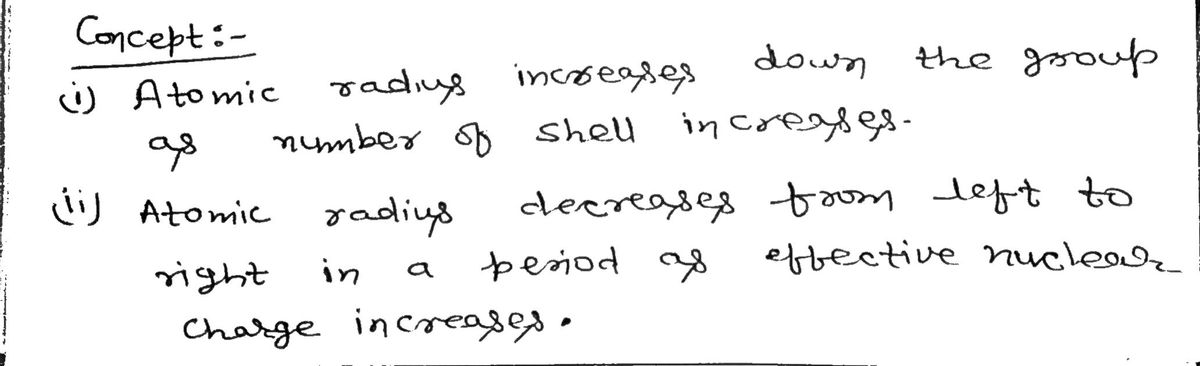 Concept :-
(i) Atomic radius increases down the group
as number of shell increases.
(ii) Atomic radius decreases from left to
right in a period as effective nuclear
charge increases.